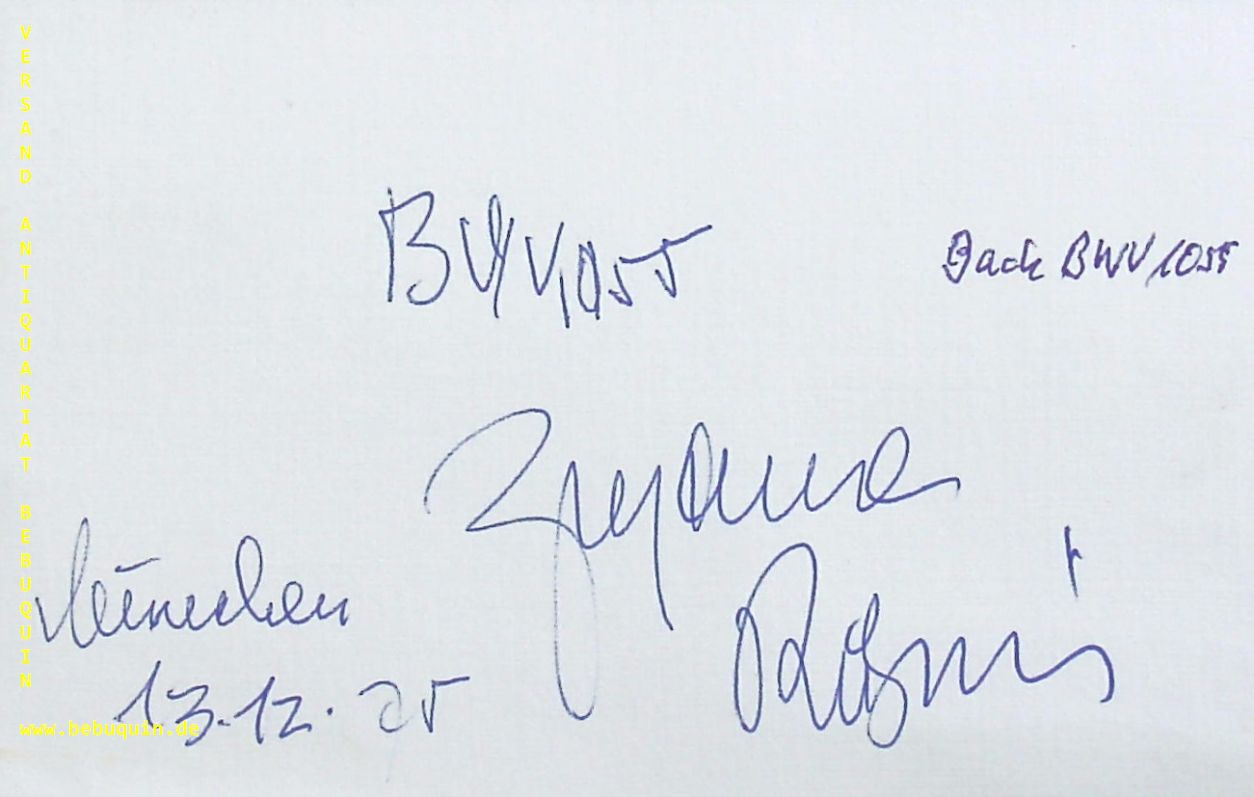 VERSAND ANTIQUARIAT BEBUQUIN
BWV 1055
Bach BWV 1055
Zuzana
München
13.12.25
www.bebuquin.de